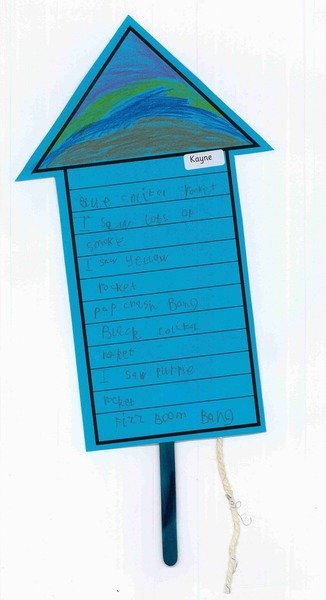 Kayne
Blue coulter rocket
I saw lots of
smoke
I saw yellow
rocket
pop crash Bang
Black coulter
rocket
I saw purple
rocket
Fizz Boom Bang